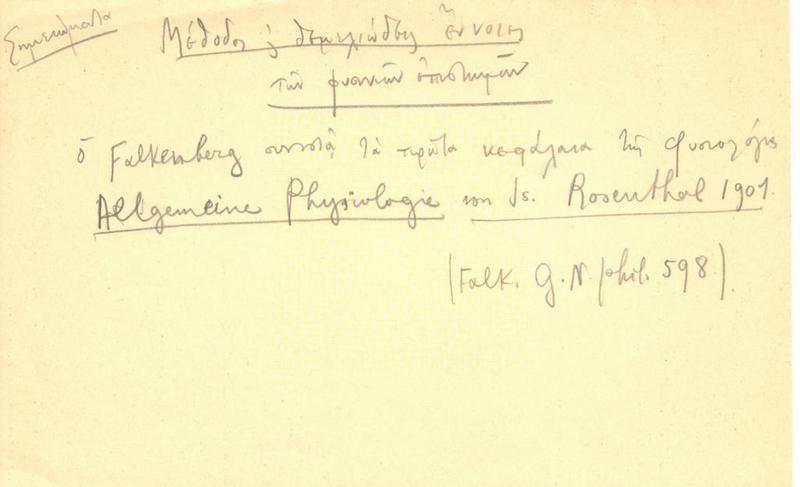 Σημειώματα
Μέθοδος ϛ θεμελιώδεις ἔννοιες
τῶν φυσικῶν ἐπιστημῶν
ὁ Falkemberg συνιστᾷ τὰ πρῶτα κεφάλαια τῆς Φυσιολογίας
Allgemeine Physiologie von Is. Rosenthal 1901.
(Falk. G. N. phil. 598).